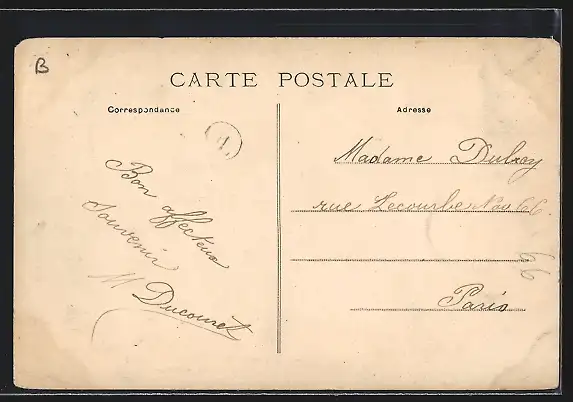 B
CARTE POSTALE
Correspondance
Adresse
Bon affectueux
Souvenir
M Ducouret
Madame Dubray
rue Lecourbe No 66
66
Paris